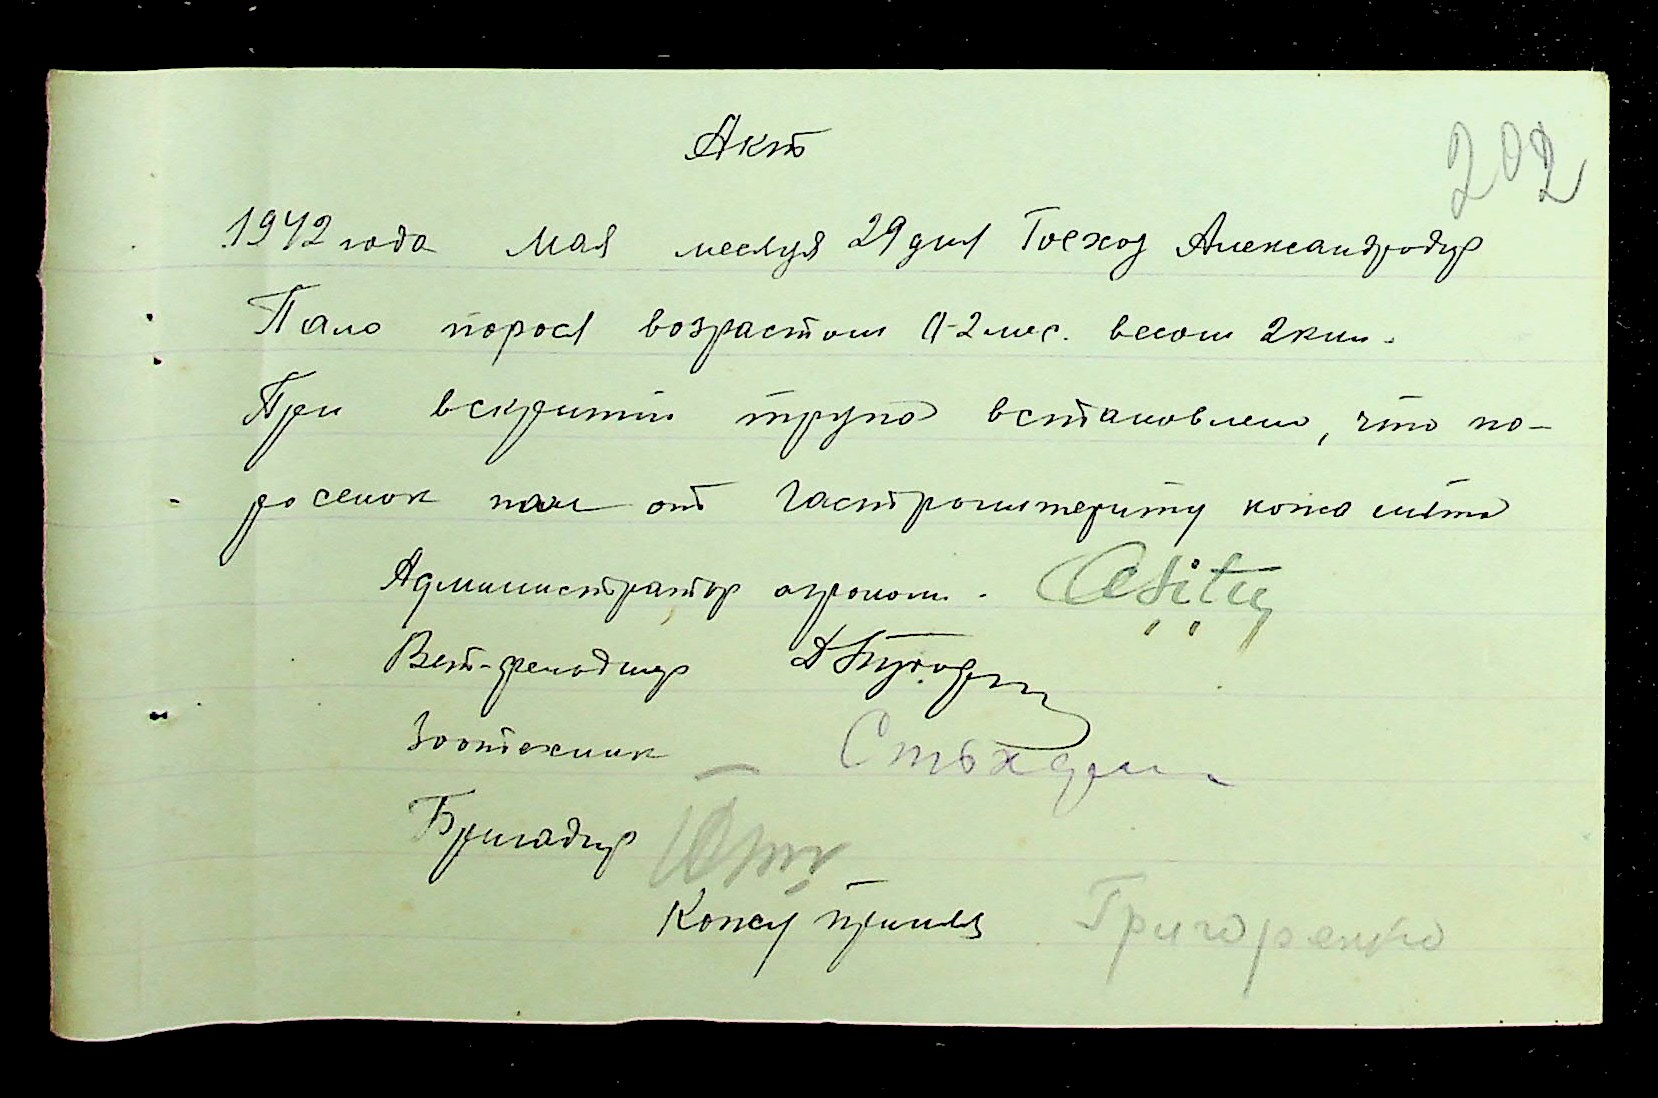 202
Акт
1942 года мая месяця 29 дня Госхоз Александродар
Пало порося возрастом 1-2 мес. весом 2 килл.
При вскритии трупа встановлено, что по-
росенок пал от гастроинтериту кожа снята
Администратор агроном.
Вет-фельдшер
Зоотехник
Бригадир
Кожу принял Григоренко